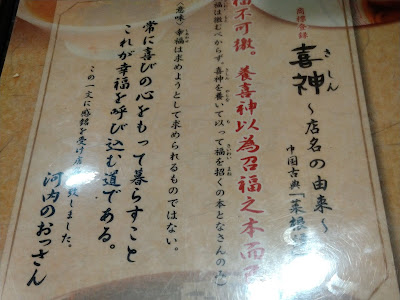 商標登録
喜神
きしん
～店名の由来～
中国古典「菜根
福不可徼。養喜神以為召福之本而
福は徼むべからず。喜神を養いて以って福を招くの本となさんのみ
(意味)幸福は求めようとして求められるものではない。
常に喜びの心をもって暮らすこと
これが幸福を呼び込む道である。
この一文に感銘を受け店
致しました。
河内のおっさん